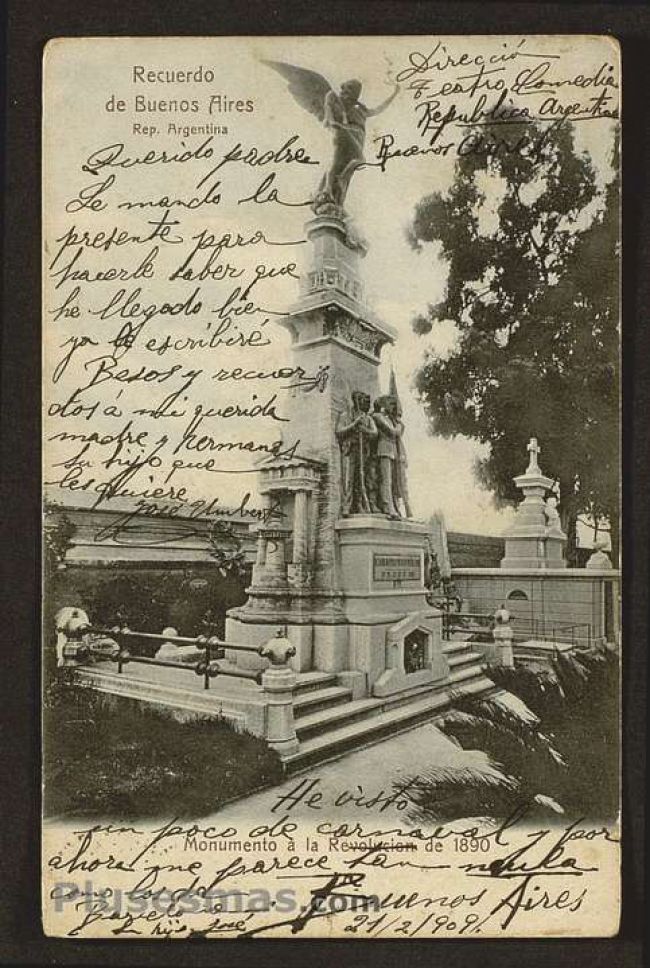 Recuerdo
de Buenos Aires
Rep. Argentina
Dirección
Teatro Comedia
Republica Argentina
Buenos Aires
Querido padre
Le mando la
presente para
hacerle saber que
he llegado bien
ya le escribiré
Besos y recuer
dos á mi querida
madre y hermanas
su hijo que
les quiere
José Umberto
He visto
un poco de carnaval y por
Monumento à la Revolucion de 1890
ahora me parece tan
Buenos Aires
Plusesmas.com
su hijo José
21/2/909.